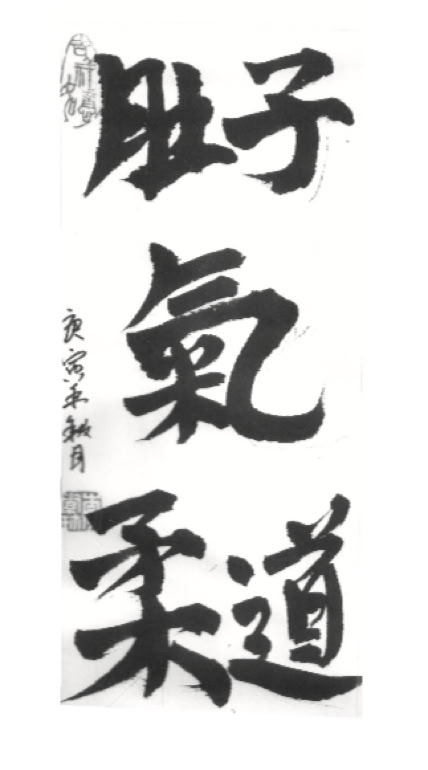 肚子
氣
柔道
庚寅年秋月